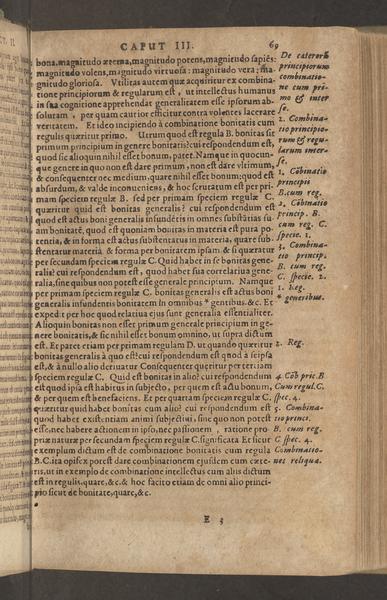 CAPUT III.
69
bona.magnitudo æterna,magnitudo potens,magnitudo sapiēs:
magnitudo volens,magnitudo virtuosa: magnitudo vera; ma-
gnitudo gloriosa. Vtilitas autem quæ acquiritur ex combina-
tione principiorum & regularum est, ut intellectus humanus
in sua cognitione apprehendat generalitatem esse ipsorum ab-
solutam, per quam cautior efficitur contra volentes lacerare
veritatem. Et ideo incipiendo à combinatione bonitatis cum
regulis quæritur primo. Utrum quod est regula B. bonitas sit
unum principium in genere bonitatis? cui respondendum est,
quod sic alioquin nihil esset bonum, patet. Namque in quocun-
que genere in quo non est dare primum, non est dare vltimum,
& consequenter nec medium. quare nihil esset bonum; quod est
absurdum, & valde inconueniens, & hoc scrutatum est per pri-
mam speciem regulæ B. sed per primam speciem regulæ C.
quæritur quid est bonitas generalis? cui respondendum est
quod est actus boni generalis infundētis in omnes substātias su-
am bonitatē, quod est quoniam bonitas in materia est pura po-
tentia, & in forma est actus substentatus in materia, quare sub-
stentatur materia & forma per bonitatem ipsam. & si quæratur
per secundam speciem regulæ C. Quid habet in se bonitas gene-
ralis? cui respondendum est, quod habet sua correlatiua gene-
ralia, sine quibus non potest esse generale principium. Namque
per primam speciem regulæ C. bonitas generalis est actus boni
generalis infundentis bonitatem in omnibus * gentibus. &c. Et
expedit per hoc quod relatiua ejus sunt generalia essentialiter.
Alioquin bonitas non esset primum generale principium in ge-
nere bonitatis, & sic nihil esset bonum omnino, ut supra dictum
est. Et patet etiam per primam regulam D. ut quando quæritur
bonitas generalis à quo est? cui respondendum est quod à seipsa
est, & à nullo alio deriuatur Consequenter quęritur per tertiam
speciem regulæ C. Quid est bonitas in alio? cui respondendum
est quod ipsa est habitus in subjecto, per quem est actu bonum,
& per quem est benefaciens. Et per quartam speciem regulæ C.
quæritur quid habet bonitas cum alio? cui respondendum est
quod habet existentiam animi subjectiui, sine quo non potest
esse, nec habere actionem in ipso, nec passionem, ratione pro-
priæ naturæ per secundam speciem regulæ C. significata Et sicut
exemplum dictum est de combinatione bonitatis cum regula
B. C. ita opifex potest dare combinationem ejusdem cum cæte-
ris, ut in exemplo de combinatione intellectus cum aliis dictum
est in regulis. quare, &c. & hoc facito etiam de omni alio princi-
pio sicut de bonitate, quare, &c.
E 3
De cæterorū
principiorum
combinatio-
ne cum pri-
mo & inter
se.
2. Combina-
tio principio-
rum & regu-
larum inter
se.
1. Cōbinatio
principii
B. cum reg.
2. Cōbinatio
Princip. B.
cum reg. C.
specie. 1.
3. Combina-
tio princip.
B. cum reg.
C. specie. 2.
1. Reg.
* gentibus.
2. Reg.
4. Cōb pric. B
Cum regul. C.
spec. 4.
5. Combina-
tio princi.
B. cum reg.
C spec. 4.
Combinatio-
nes reliquæ.